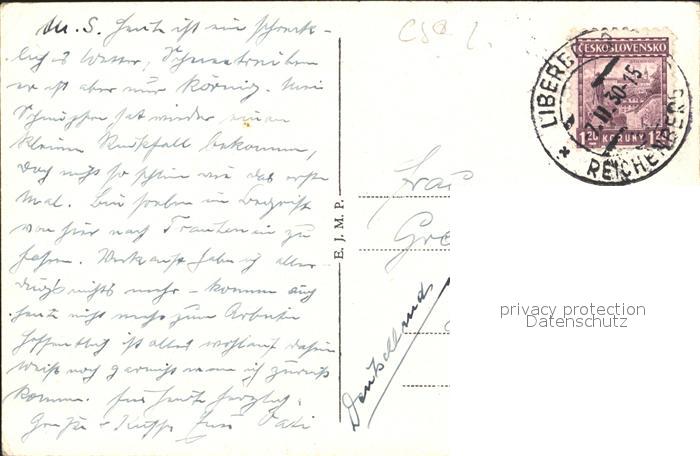 M. S. Heute ist ein schreck-
liches Wetter, Schneetreiben
er ist aber nur körnig. Mein
Schnupfen hat wieder einen
kleinen Rückfall bekommen,
doch nicht so schlimm wie das erste
Mal. Bin soeben im Begriff
von hier nach Trautenau zu
fahren. Verkauft habe ich aller-
dings nichts mehr - komme auch
heute nicht mehr zum Arbeiten
Hoffentlich ist alles wohlauf daheim
Weiß noch gar nicht wann ich zurück
komme. Für heute herzl.
Grüße + Küsse Euer Vati
E. J. M. P.
CSR
Frau
Gre
Deutschland
ČESKOSLOVENSKO
1.20 KORUNY 1.20
LIBEREC
II.30-15
REICHENBERG
privacy protection
Datenschutz